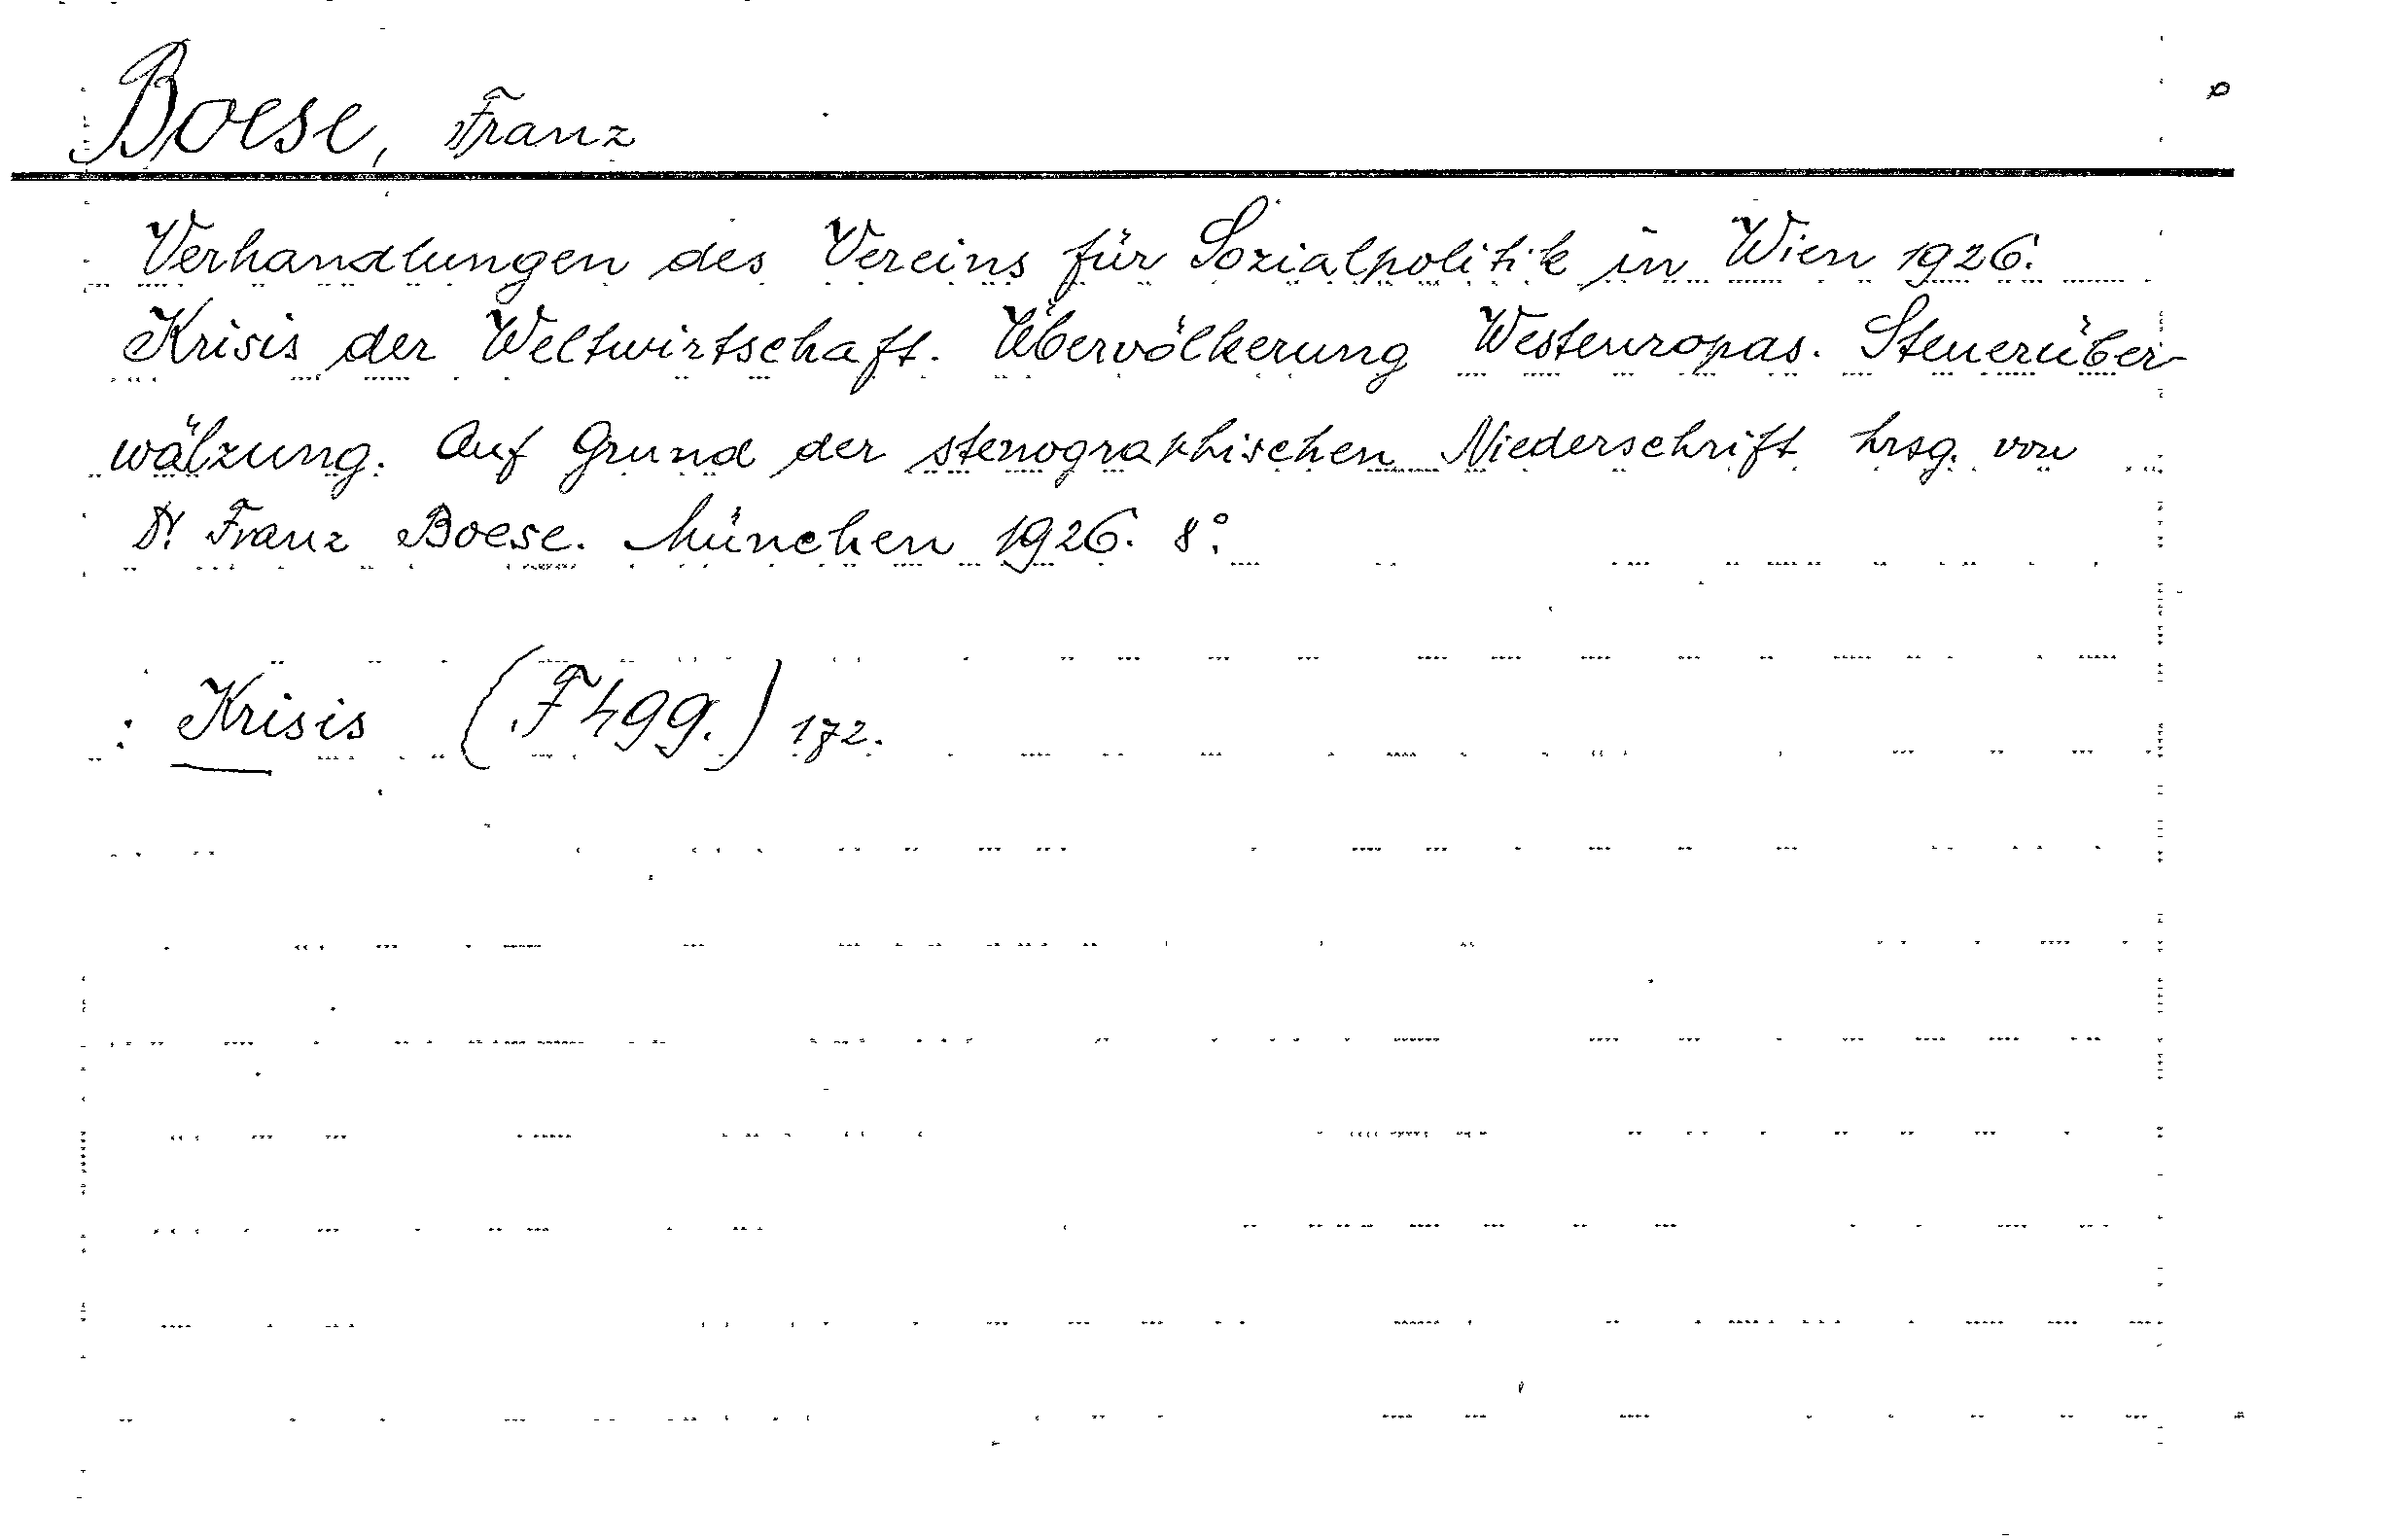 Boese, Franz
Verhandlungen des Vereins für Sozialpolitik in Wien 1926.
Krisis der Weltwirtschaft. Übervölkerung Westeuropas. Steuerüber-
wälzung. Auf Grund der stenographischen Niederschrift hrsg. von
Dr. Franz Boese. München 1926. 8°.
: Krisis (F 499.) 172.